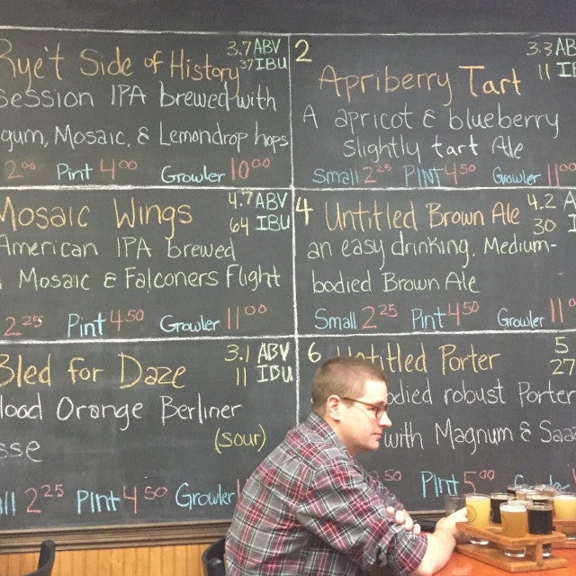 Rye't Side of History 3.7 ABV
37 IBU
Session IPA brewed with
gum, Mosaic, & Lemondrop hops
2.00 Pint 4.00 Growler 10.00
2 Apriberry Tart 3.3 AB
11 IB
A apricot & blueberry
slightly tart Ale
Small 2.25 Pint 4.50 Growler 11.00
Mosaic Wings 4.7 ABV
64 IBU
American IPA brewed
Mosaic & Falconers Flight
2.25 Pint 4.50 Growler 11.00
4 Untitled Brown Ale 4.2 A
30 I
an easy drinking, Medium-
bodied Brown Ale
Small 2.25 Pint 4.50 Growler 11.0
Bled for Daze 3.1 ABV
11 IBU
lood Orange Berliner
sse (sour)
ll 2.25 Pint 4.50 Growler
6 Untitled Porter 5
27
odied robust Porter
with Magnum & Saaz
.50 Pint 5.00